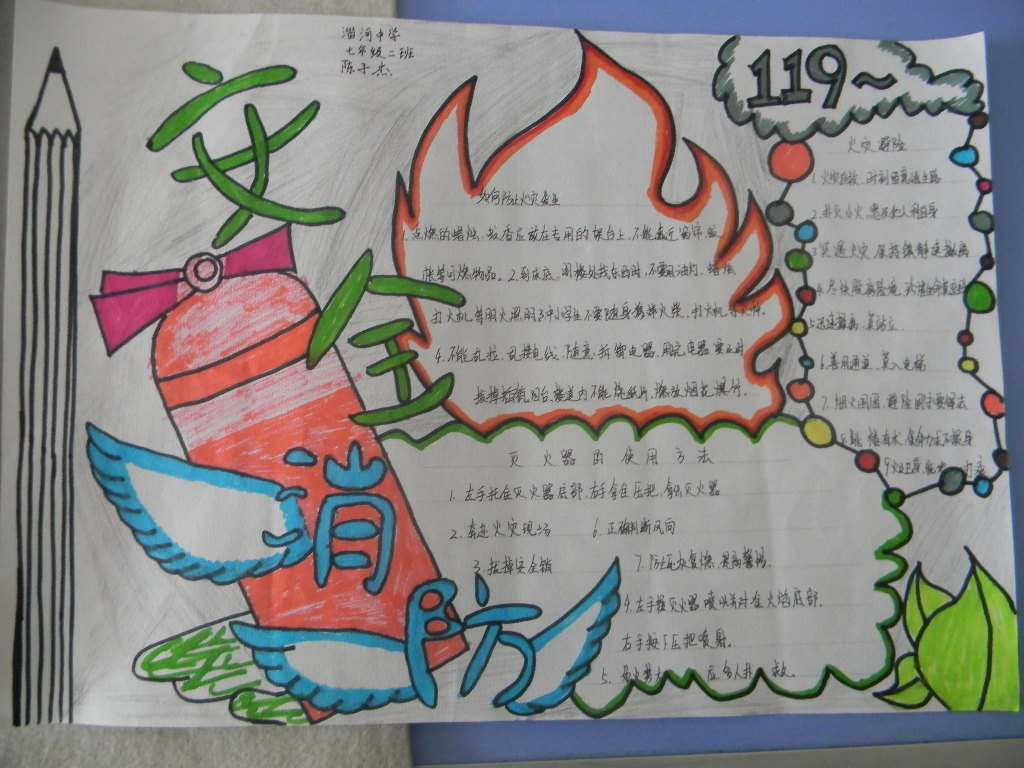 淄河中学
七年级二班
陈子杰
安全
消防
119~
如何防止火灾发生
1.点燃的蜡烛、蚊香应放在专用的架台上,不能靠近窗帘、蚊
帐等可燃物品。2.到床底、阁楼处找东西时,不要用油灯、蜡烛
打火机等明火照明3.中小学生不要随身携带火柴、打火机等火种.
4.不能乱拉、乱接电线,随意拆卸电器,用完电器要及时
拔掉插 阳台、楼道内不能烧纸片,燃放烟花爆竹.
灭火器的使用方法
1.左手托住灭火器底部,右手拿住压把,拿 灭火器
2.奔进火灾现场
6.正确判断风向
3.拔掉安全销
7.防止 复燃,提高警惕.
4.左手握灭火器喷 对住火焰底部.
右手按下压把喷射.
5.
火灾避险
1. 时刻留意逃生路
2.扑灭小火,惠及他人利自身
3.突遇火灾,保持镇静速撤离
4.尽快脱离险境,珍惜生命莫恋财
5.迅速撤离,莫站立
6.善用通道,莫入电梯
7.烟火围困,避险固守要得法
8. 身
9.火